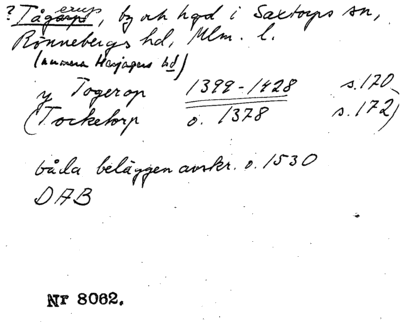 ? Tågarps erup, by och hgd i Saxtorps sn,
Rönnebergs hd, Mlm. l.
(numera Harjagers hd)
y Togerop 1399-1428 s. 170
(Tocketorp o. 1378 s. 172)
båda beläggen avskr. o. 1530
DAB
Nr 8062.